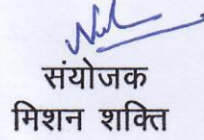 संयोजक
मिशन शक्ति